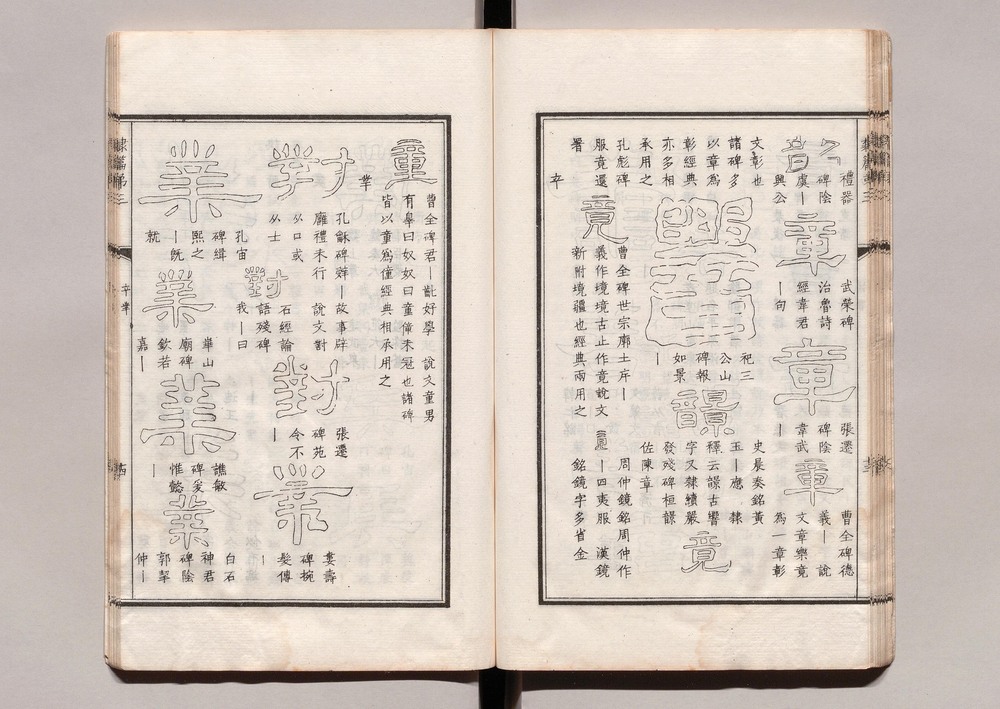 禮器
碑陰
虞—
興公
章
武榮碑
治魯詩
經韋君
—句
章
張遷
碑陰
韋武
—
章
曹全碑德
義— 說
文章樂竟
為一章彰
文彰也
諸碑多
以章為
彰經典
亦多相
承用之
響
祀三
公山
碑報
如景
—
韻
史晨奏銘黃
玉—應 隸
釋云韻古響
字又隸續嚴
發殘碑桓韻
佐陳章
竟
孔彪碑
服竟還
署
辛
竟
曹全碑世宗廓土斥—
義作境境古止作竟說文
新附境疆也經典兩用之
竟
周仲鏡銘周仲作
—四夷服 漢鏡
銘鏡字多省金
童
曹全碑君—齓好學 說文童男
有辠曰奴奴曰童僮未冠也諸碑
皆以童為僮經典相承用之
丵
對
孔龢碑辤—故事辟
廱禮未行 說文對
从口或
从士
對
石經論
語殘碑
我—曰
對
張遷
碑苑
令不
—
業
婁壽
碑椀
髮傳
—
業
孔宙
碑緝
熙之
—既
就
業
崋山
廟碑
欽若
嘉—
業
譙敏
碑爰
惟懿
—
業
白石
神君
碑陰
郭挈
仲—
隸篇弟三
辛丵